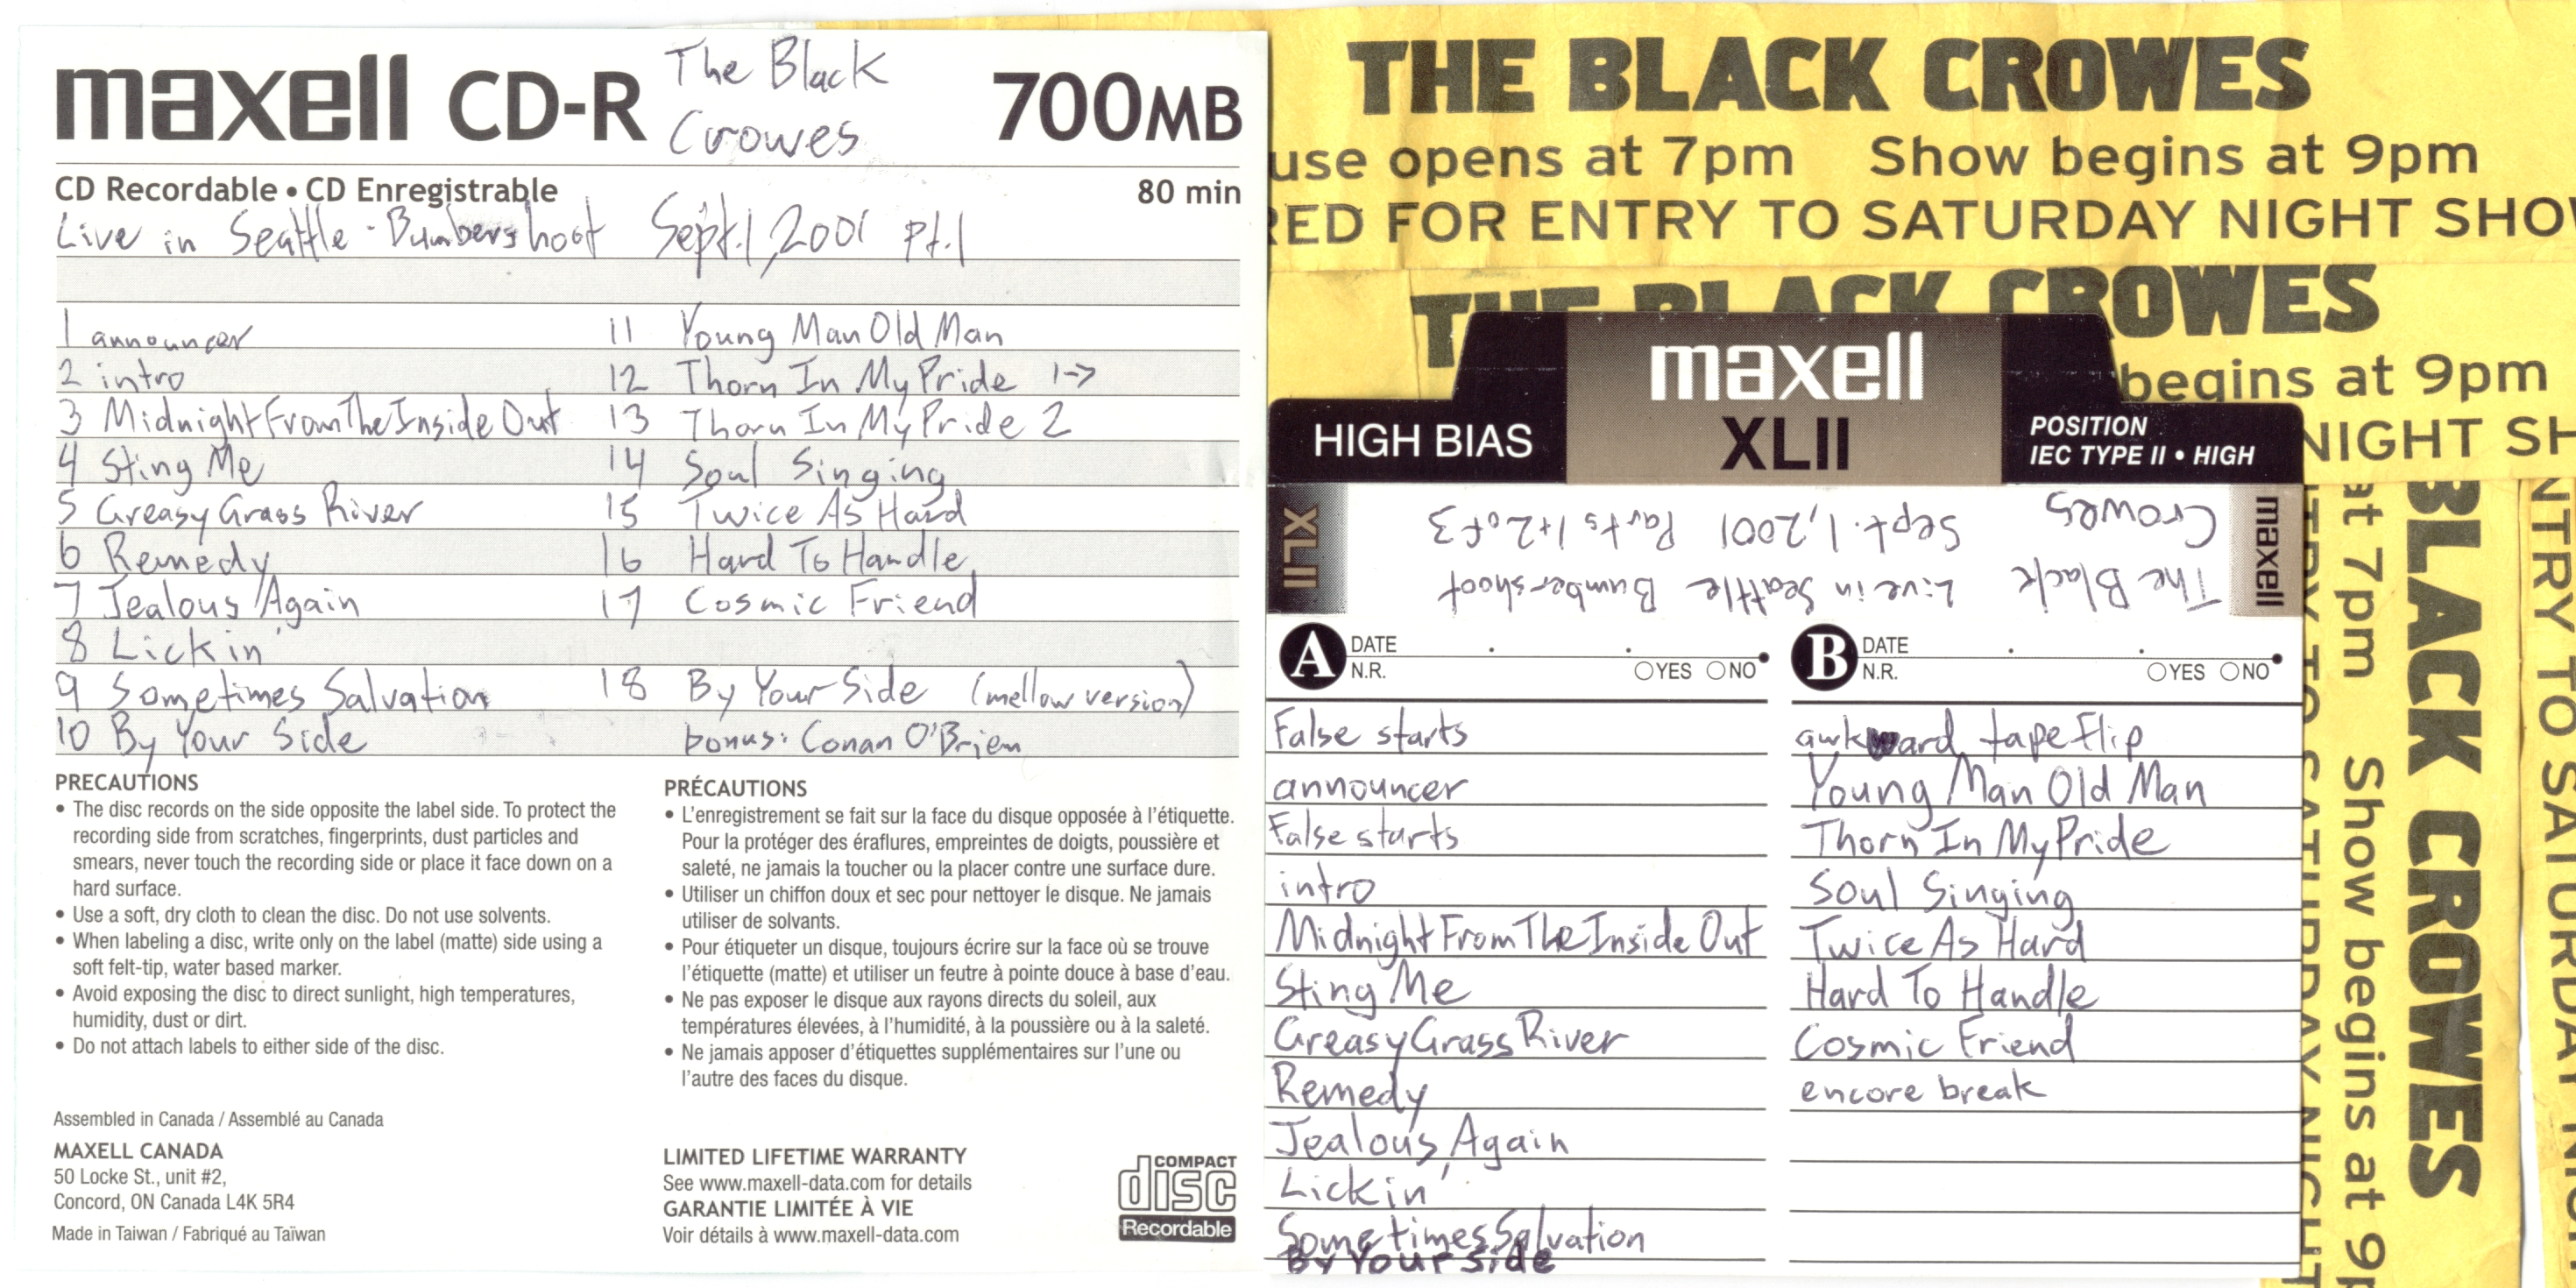 maxell CD-R The Black Crowes 700MB
CD Recordable • CD Enregistrable 80 min
Live in Seattle - Bumbershoot Sept. 1, 2001 pt. 1
1 announcer
2 intro
3 Midnight From The Inside Out
4 Sting Me
5 Greasy Grass River
6 Remedy
7 Jealous Again
8 Lickin'
9 Sometimes Salvation
10 By Your Side
11 Young Man Old Man
12 Thorn In My Pride 1->
13 Thorn In My Pride 2
14 Soul Singing
15 Twice As Hard
16 Hard To Handle
17 Cosmic Friend
18 By Your Side (mellow version)
bonus: Conan O'Brien
PRECAUTIONS
• The disc records on the side opposite the label side. To protect the
recording side from scratches, fingerprints, dust particles and
smears, never touch the recording side or place it face down on a
hard surface.
• Use a soft, dry cloth to clean the disc. Do not use solvents.
• When labeling a disc, write only on the label (matte) side using a
soft felt-tip, water based marker.
• Avoid exposing the disc to direct sunlight, high temperatures,
humidity, dust or dirt.
• Do not attach labels to either side of the disc.
Assembled in Canada / Assemblé au Canada
MAXELL CANADA
50 Locke St., unit #2,
Concord, ON Canada L4K 5R4
Made in Taiwan / Fabriqué au Taïwan
PRÉCAUTIONS
• L'enregistrement se fait sur la face du disque opposée à l'étiquette.
Pour la protéger des éraflures, empreintes de doigts, poussière et
saleté, ne jamais la toucher ou la placer contre une surface dure.
• Utiliser un chiffon doux et sec pour nettoyer le disque. Ne jamais
utiliser de solvants.
• Pour étiqueter un disque, toujours écrire sur la face où se trouve
l'étiquette (matte) et utiliser un feutre à pointe douce à base d'eau.
• Ne pas exposer le disque aux rayons directs du soleil, aux
températures élevées, à l'humidité, à la poussière ou à la saleté.
• Ne jamais apposer d'étiquettes supplémentaires sur l'une ou
l'autre des faces du disque.
LIMITED LIFETIME WARRANTY
See www.maxell-data.com for details
GARANTIE LIMITÉE À VIE
Voir détails à www.maxell-data.com
COMPACT
disc
Recordable
THE BLACK CROWES
use opens at 7pm Show begins at 9pm
RED FOR ENTRY TO SATURDAY NIGHT SHO
THE BLACK CROWES
begins at 9pm
NIGHT SH
maxell
HIGH BIAS XLII POSITION
IEC TYPE II • HIGH
XLII
maxell
The Black Crowes
Live in Seattle Bumbershoot
Sept. 1, 2001 Parts 1+2 of 3
A DATE
N.R. YES NO
False starts
announcer
False starts
intro
Midnight From The Inside Out
Sting Me
Greasy Grass River
Remedy
Jealous Again
Lickin'
Sometimes Salvation
By Your Side
B DATE
N.R. YES NO
awkward tape flip
Young Man Old Man
Thorn In My Pride
Soul Singing
Twice As Hard
Hard To Handle
Cosmic Friend
encore break
BLACK CROWES
at 7pm Show begins at 9p
NTRY TO SATURDAY NIGHT
NTRY TO SATURDAY NIG